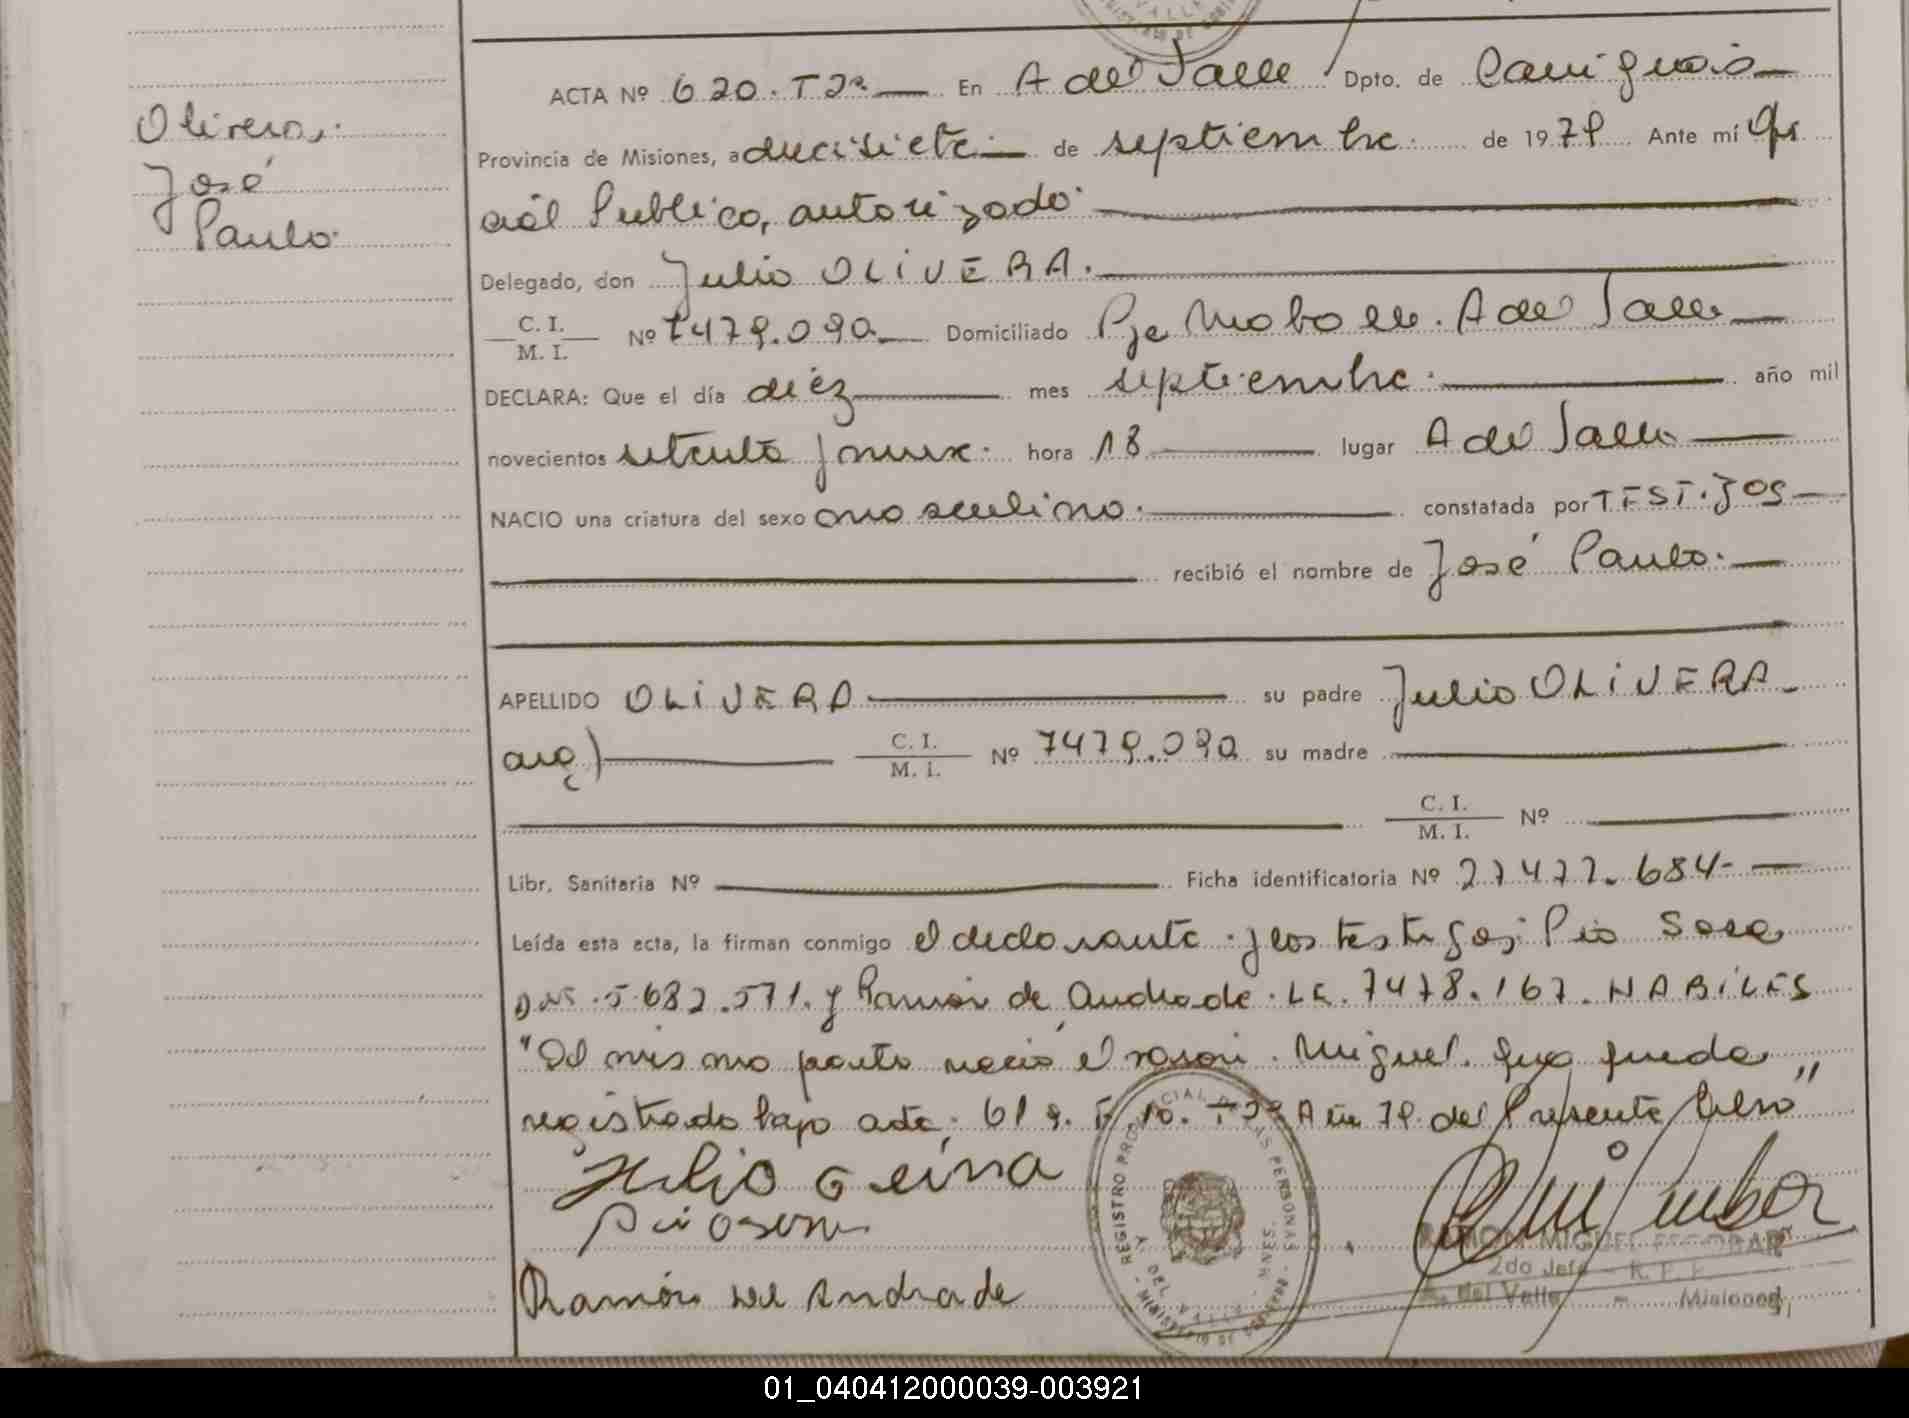 Olivera.
José
Paulo
ACTA Nº 620. T2º En A del Valle Dpto. de Cainguás
Provincia de Misiones, a diecisiete de septiembre de 1979 Ante mí Ofi
cial Publico, autorizado
Delegado, don Julio OLIVERA.
C. I. / M. I. Nº 7479.090 Domiciliado Pje A del Valle
DECLARA: Que el día diéz mes septiembre año mil
novecientos setenta y nueve hora 18 lugar A del Valle
NACIO una criatura del sexo masculino. constatada por TESTIGOS
recibió el nombre de José Paulo.
APELLIDO OLIVERA su padre Julio OLIVERA
arg) C. I. / M. I. Nº 7479.090 su madre
C. I. / M. I. Nº
Libr. Sanitaria Nº Ficha identificatoria Nº 27477.684-
Leída esta acta, la firman conmigo el declarante y los testigos: Pio Sosa
DNI. 5.682.571. y Ramón de Andrade. LE. 7478.167. HABILES
"Del mismo parto nació el varon. Miguel. que queda
registrado bajo acta; 619. F 10. T2º Año 79. del Presente libro"
Julio
Ramón de Andrade
REGISTRO PROVINCIAL DE LAS PERSONAS
A. DEL VALLE - MNES.
MINISTERIO DE GOBIERNO
RAMON MIGUEL ESCOBAR
2do Jefe - R. P. P.
A. del Valle - Misiones
01_040412000039-003921